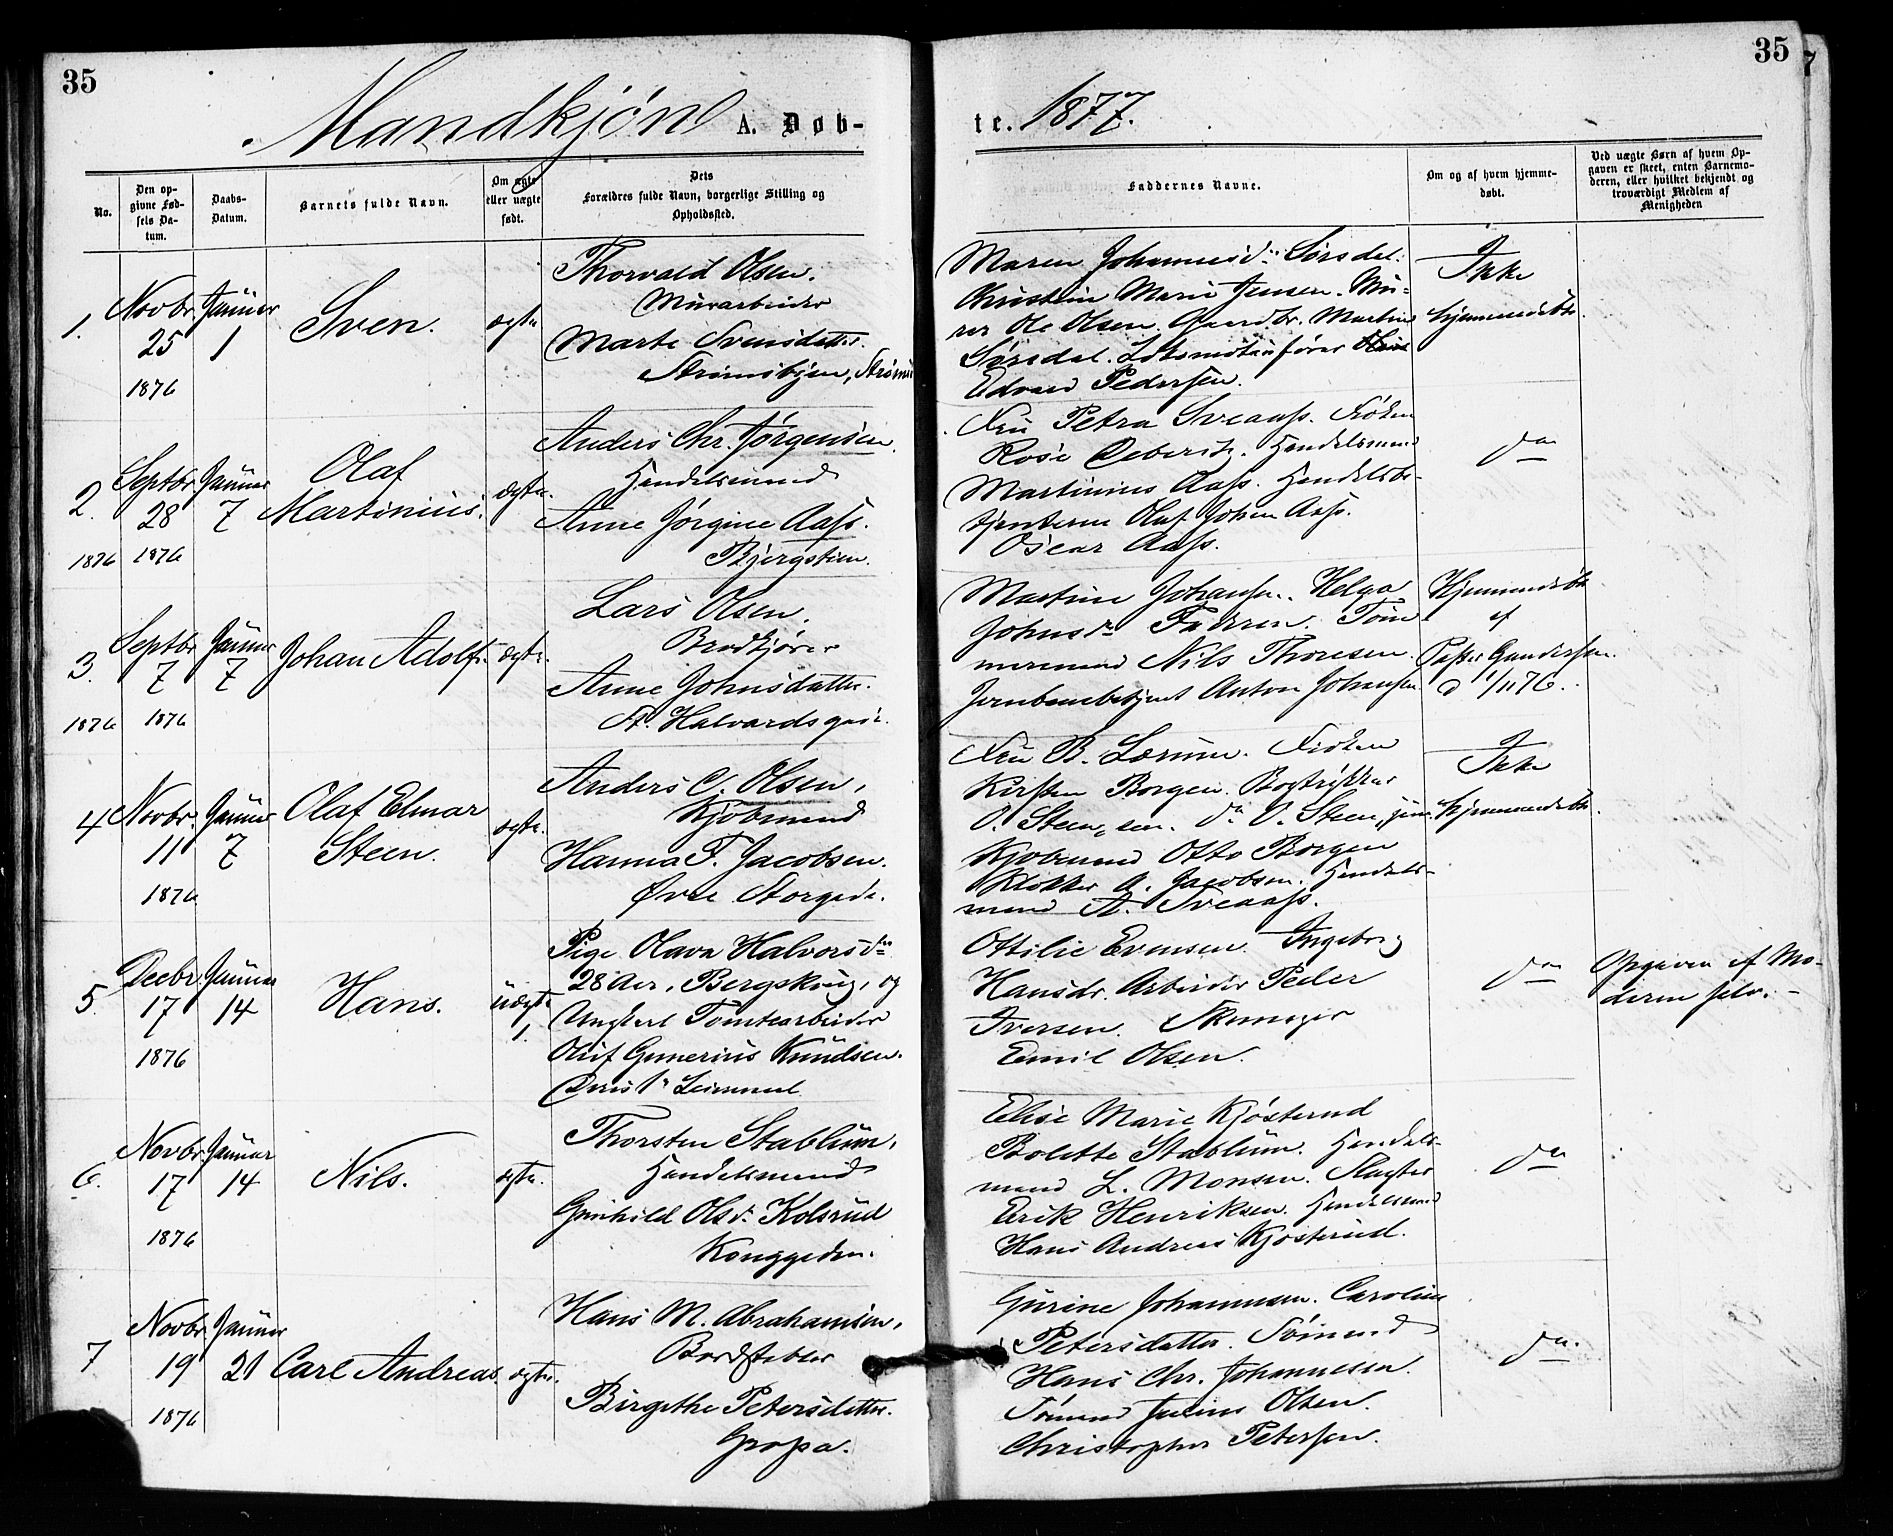 35
35
Mandkjøn A. Døb-
te. 1877.
No.
Den op-
givne Fød-
sels Da-
tum.
Daabs-
Datum.
Barnets fulde Navn.
Om ægte
eller uægte
født.
Dets
Forældres fulde Navn, borgerlige Stilling og
Opholdssted.
Faddernes Navne.
Om og af hvem hjemme-
døbt.
Ved uægte Børn af hvem Op-
gaven er skeet, enten Barnemo-
deren, eller hvilket bekjendt og
troværdigt Medlem af
Menigheden
1.
Novbr.
25
1876
Januar
1
Sven.
ægte
Thorvald Olsen.
Murarbeider
Marte Svensdatter.
Strømsbyen, Strømm
Maren Johannesd. Sørsdal.
Christine Marie Jensen. Mu-
rer Ole Olsen. Gaardbr. Martin
Sørsdal. Lokomotivfører
Edvard Pedersen.
Ikke
hjemmedøbt.
2.
1876
Septbr.
28
1876
Januar
7
Olaf
Martinius.
ægte.
Anders Chr. Jørgensen.
Handelsmand
Anne Jørgine Aass.
Bjergstien.
Fru Petra Sveaass. Frøken
Rosé . Handelsmand
Martinius Aass. Handelsbe-
tjenterne Olaf Johan Aass.
Oscar Aass.
do
3.
1876
Septbr
7
1876
Januar
7
Johan Adolf.
ægte.
Lars Olsen.
Brødkjører
Anne Johnsdatter.
St. Halvardsgade.
Martine Johansen. Helga
Johnsdr Tøm
mermand Nils Thoresen.
Jernbanebetjent Anton Johansen
Hjemmedøbt
af
Gundersen.
d 1/11 76.
4
Novbr.
11
1876
Januar
7
Olaf Elmar
Steen.
ægte.
Anders C. Olsen,
Kjøbmand
Hanna F. Jacobsen.
Øvre Storgade.
Fru B. Lærum. Frøken
Kirsten Borgen. Bogtrykker
O. Steen, sen. do O. Steen, jun.
Kjøbmand Otto Borgen
Klokker A. Jacobsen. Handels-
mand A. Sveaass.
Ikke
hjemmedøbt.
5.
Decbr.
17
1876
Januar
14
Hans.
uægte
1.
Pige Olava Halvorsdr
28 Aar, Bergskoug, og
Ungkarl Tomtearbeider
Oluf Gunerius Knudsen.
Ottilie Evensen. Ingeborg
Hansdr. Arbeider Peder
Iversen. Skomager
Emil Olsen.
do
Opgaven af Mo-
deren selv.
6.
Novbr.
17
1876
Januar
14
Nils.
ægte.
Thorsten Stablum,
Handelsmand
Gunhild Olsdr. Kolsrud
Konggaden.
Elise Marie Kjøsterud
Bolette Stablum. Handels-
mand L. Monsen. Slagter
Erik Henriksen. Handelsmand
Hans Andreas Kjøsterud.
do
7
Novbr.
19
1876
Januar
21
Carl Andreas.
ægte.
Hans M. Abrahamsen,
Bordstabler
Birgithe Petersdatter.
Gropa.
Gurine Johannesen. Caroline
Petersdatter. Sømand
Hans Chr. Johannesen.
Sømand Julius Olsen.
Christopher Petersen.
do